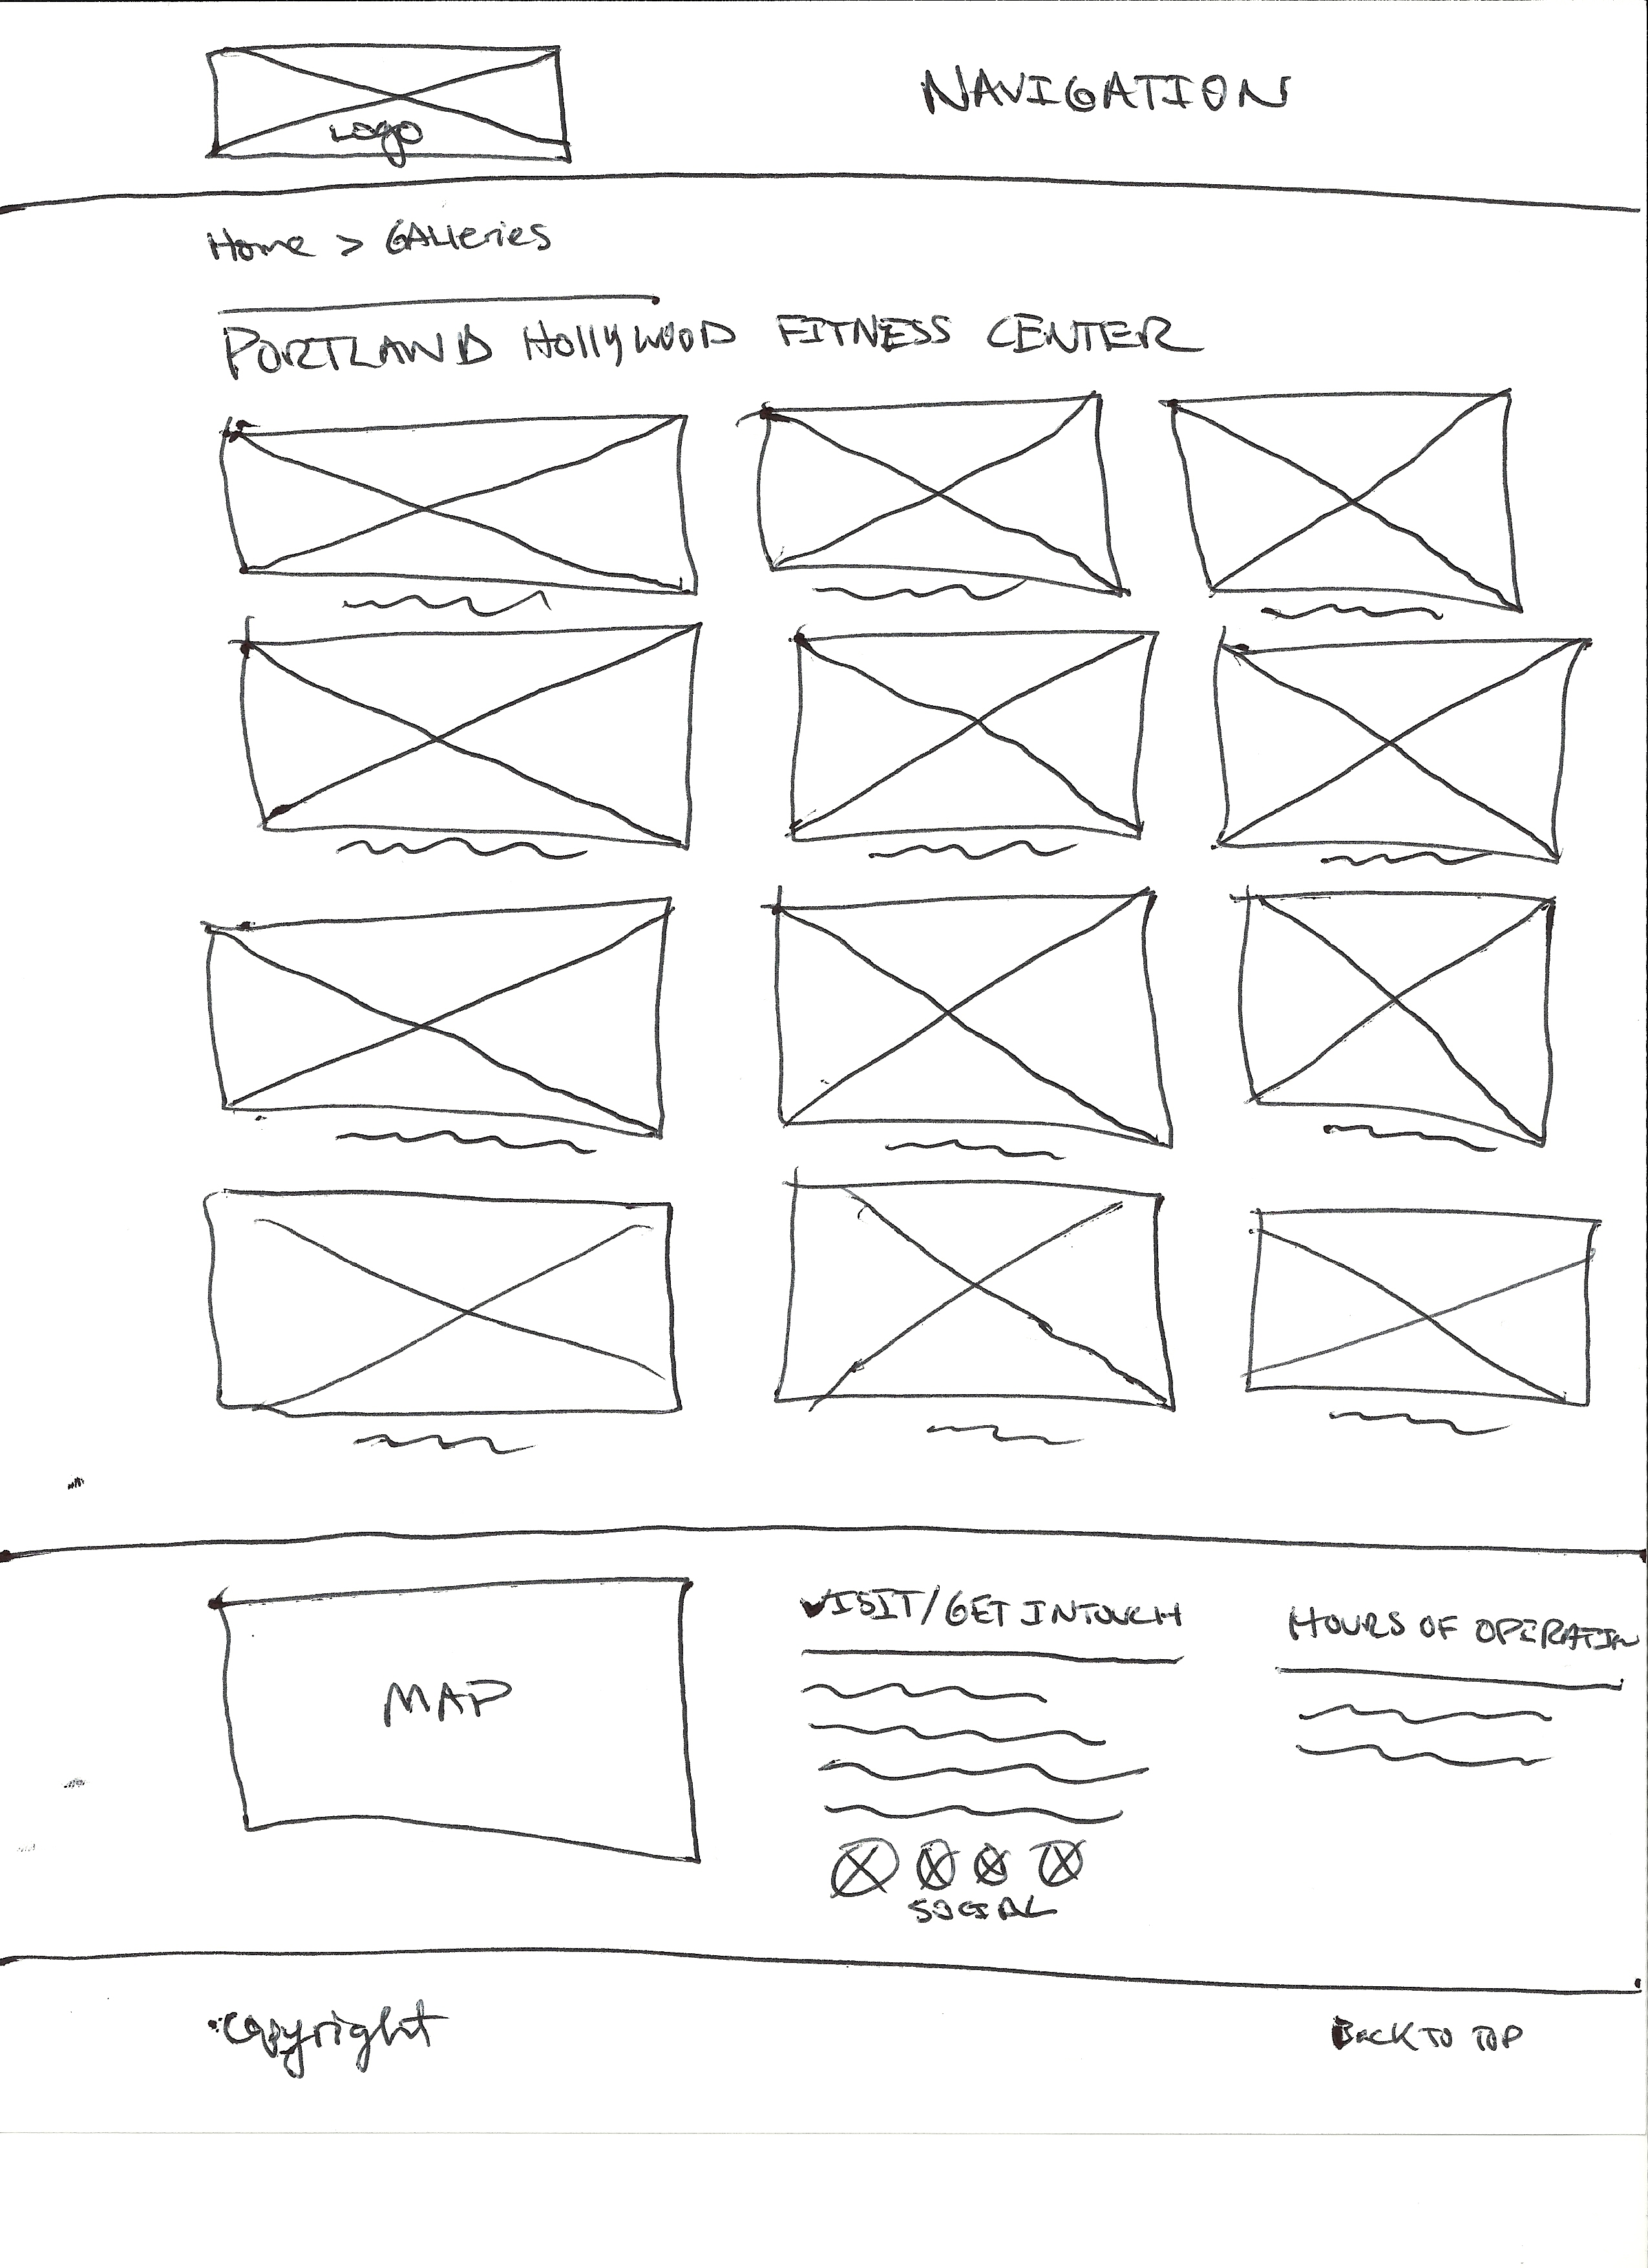 Logo
NAVIGATION
Home > GALleries
PORTLAND HollyWOOD FITNESS CENTER
MAP
VISIT/GET IN TOUCH
HOURS OF OPERATIN
SOCIAL
Copyright
BACK TO TOP